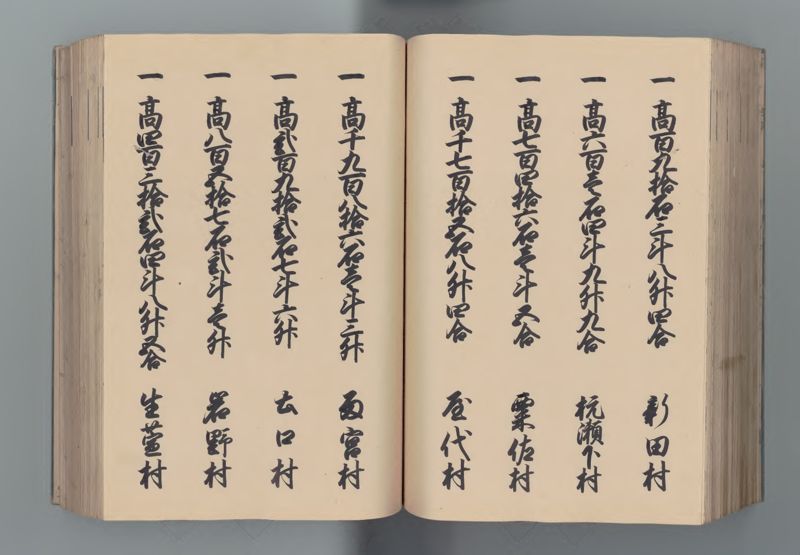 一 高百九拾石三斗八升四合 新田村
一 高六百壱石四斗九升九合 杭瀬下村
一 高七百四拾六石壱斗五合 粟佐村
一 高千七百拾五石八升四合 屋代村
一 高千九百八拾六石壱斗三升 雨宮村
一 高弐百九拾弐石七斗六升 土口村
一 高八百五拾七石弐斗壱升 岩野村
一 高四百三拾弐石四斗八升五合 生萱村